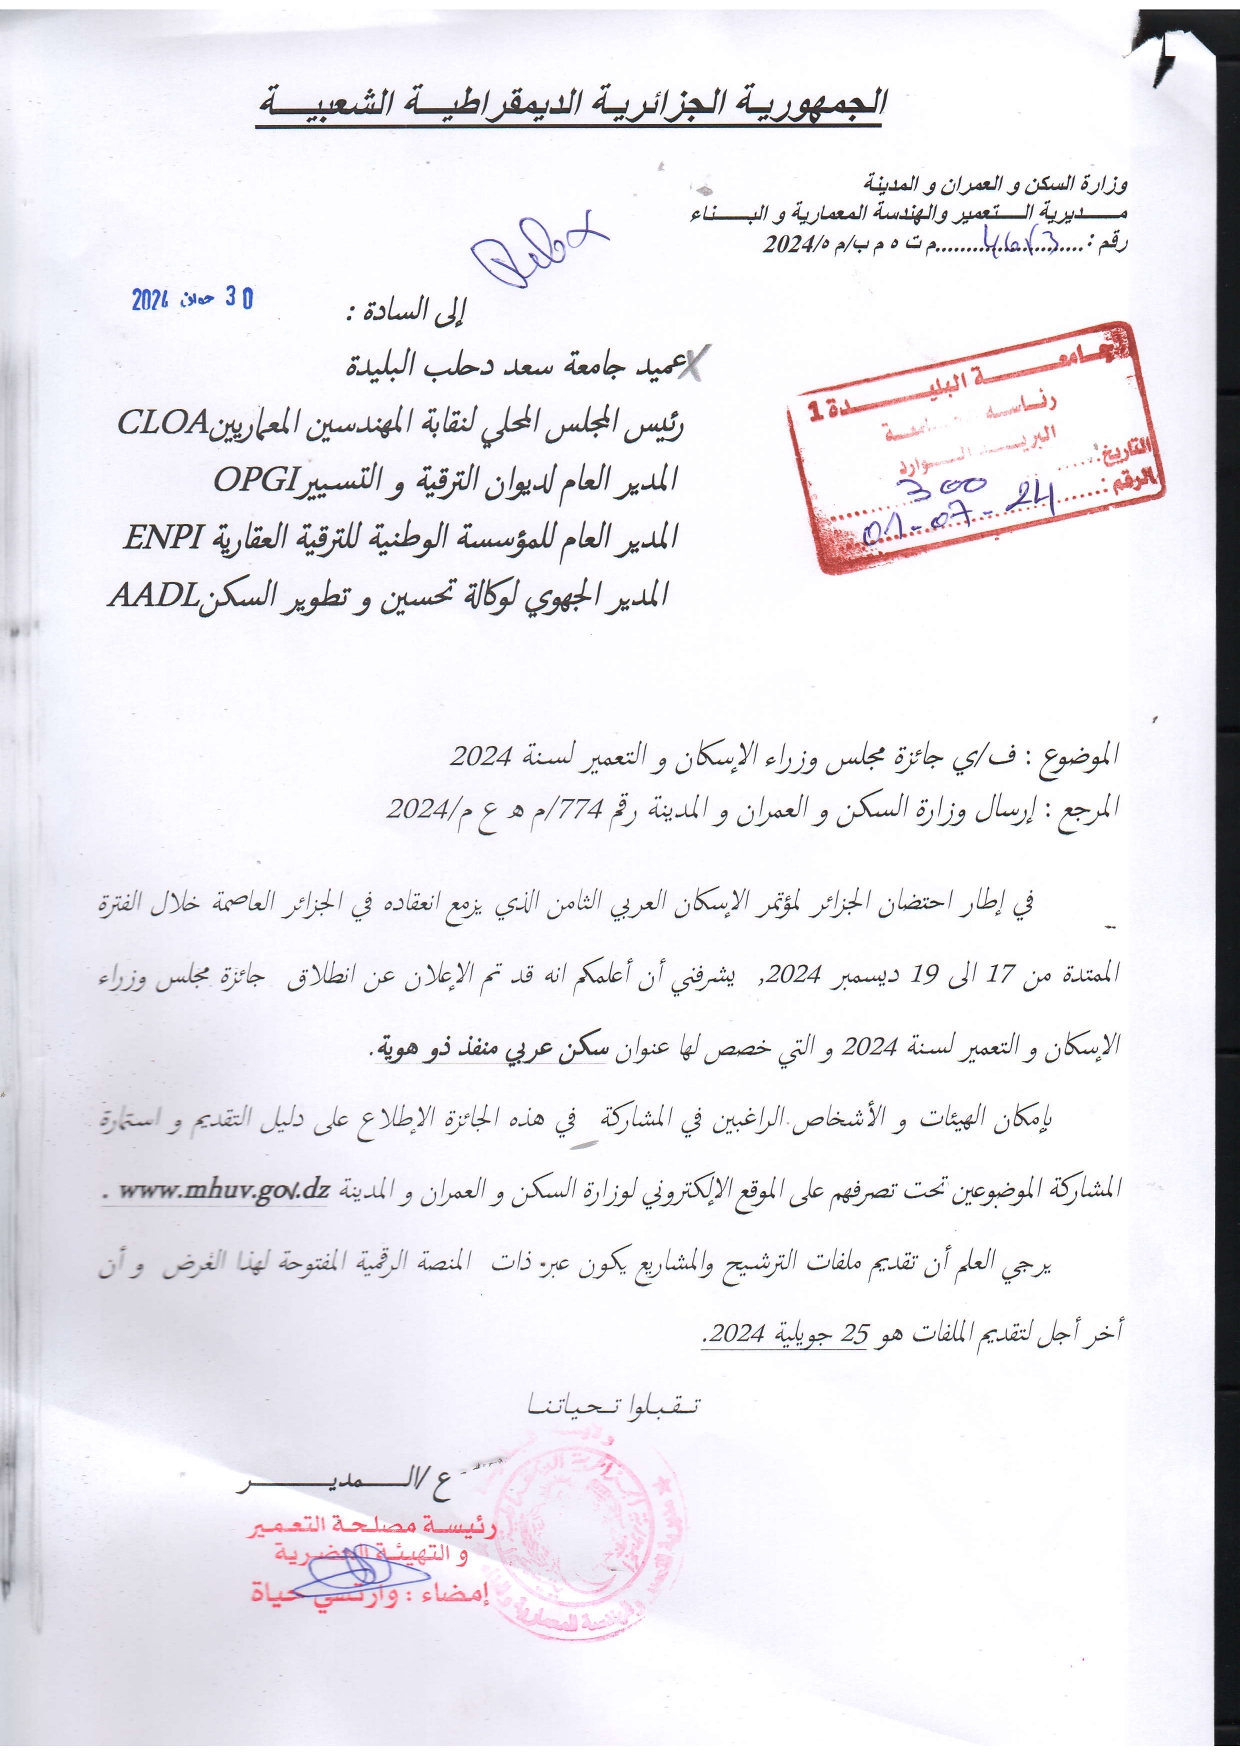 الجمهورية الجزائرية الديمقراطية الشعبية
وزارة السكن و العمران و المدينة
مديرية التعمير والهندسة المعمارية و البناء
رقم :............م ت ه م ب/م ه/2024
30 جوان 2024
إلى السادة :
عميد جامعة سعد دحلب البليدة
رئيس المجلس المحلي لنقابة المهندسين المعماريين CLOA
المدير العام لديوان الترقية و التسيير OPGI
المدير العام للمؤسسة الوطنية للترقية العقارية ENPI
المدير الجهوي لوكالة تحسين و تطوير السكن AADL
جامعة البليدة 1
رئاسة الجامعة
البريد الوارد
التاريخ: 300
الرقم: 01-07-24
الموضوع : ف/ي جائزة مجلس وزراء الإسكان و التعمير لسنة 2024
المرجع : إرسال وزارة السكن و العمران و المدينة رقم 774/م ه ع م/2024
في إطار احتضان الجزائر لمؤتمر الإسكان العربي الثامن الذي يزمع انعقاده في الجزائر العاصمة خلال الفترة
الممتدة من 17 الى 19 ديسمبر 2024, يشرفني أن أعلمكم انه قد تم الإعلان عن انطلاق جائزة مجلس وزراء
الإسكان و التعمير لسنة 2024 و التي خصص لها عنوان سكن عربي منفذ ذو هوية.
بإمكان الهيئات و الأشخاص الراغبين في المشاركة في هذه الجائزة الإطلاع على دليل التقديم و استمارة
المشاركة الموضوعين تحت تصرفهم على الموقع الإلكتروني لوزارة السكن و العمران و المدينة www.mhuv.gov.dz .
يرجي العلم أن تقديم ملفات الترشيح والمشاريع يكون عبر ذات المنصة الرقمية المفتوحة لهذا الغرض و أن
أخر أجل لتقديم الملفات هو 25 جويلية 2024.
تقبلوا تحياتنا
ع/المدير
رئيسة مصلحة التعمير
و التهيئة الحضرية
إمضاء : وارتسي حياة